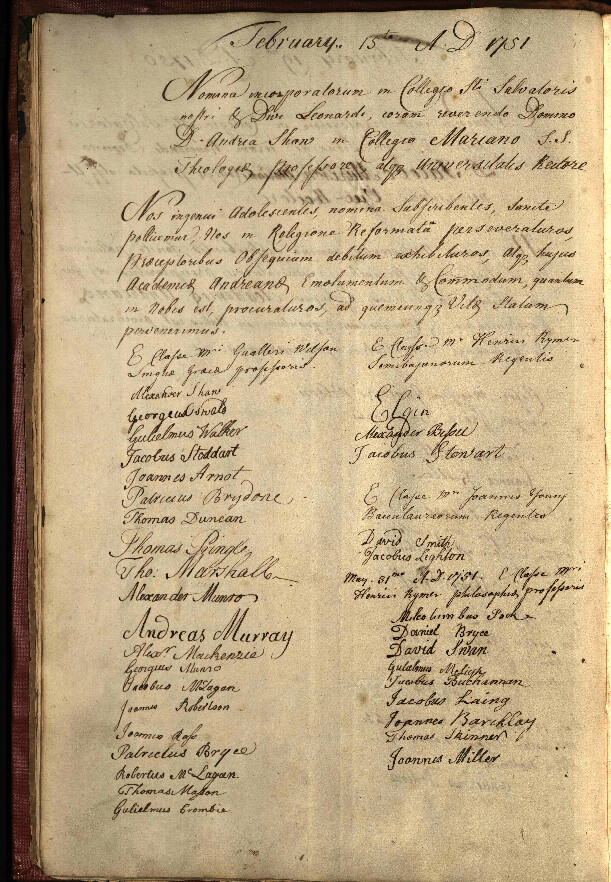 February 15to A. D 1751
Nomina incorporatorum in Collegio Sti Salvatoris
nostri & Divi Leonardi, coram reverendo Domino
D. Andrea Shaw in Collegio Mariano S. S.
Theologiæ Professore atqꝫ Universitatis Rectore
Nos ingenui Adolescentes, nomina Subscribentes, Sancte
pollicemur, Nos in Religione Reformata perseveraturos,
Præceptoribus Obsequium debitum exhibituros, Atqꝫ hujus
Academiæ Andreanæ Emolumentum & Commodum, quantum
in Nobis est, procuraturos, ad quemcunqꝫ Vitæ Statum
pervenerimus.
E Classe Mri Gualteri Wilson
Linguæ Græcæ professoris.
Alexander Shaw
Georgius
Gulielmus Walker
Jacobus Stoddart
Joannes Arnot
Patricius Brydone
Thomas Duncan
Thomas Pringle
Tho: Marshall
Alexander Munro
Andreas Murray
Alexr Mackenzie
Georgius Munro
Jacobus McLagan
Joannes Robertson
Joannes Ross
Patricius Bryce
Robertus McLagan
Thomas Mason
Gulielmus Crombie
E Classe Mri Henrici Rymer
Semibajanorum Regentis
Elgin
Alexander
Jacobus Stewart
E Classe Mri Joannis Young
Baccalaureorum Regentis
David Smith
Jacobus Leghton
May. 31mo A. D. 1751. E Classe Mri
Henrici Rymer philosophiæ professoris
Daniel Bryce
David Swan
Gulielmus
Jacobus Buchannan
Jacobus Laing
Joannes Barcklay
Thomas Skinner
Joannes Miller